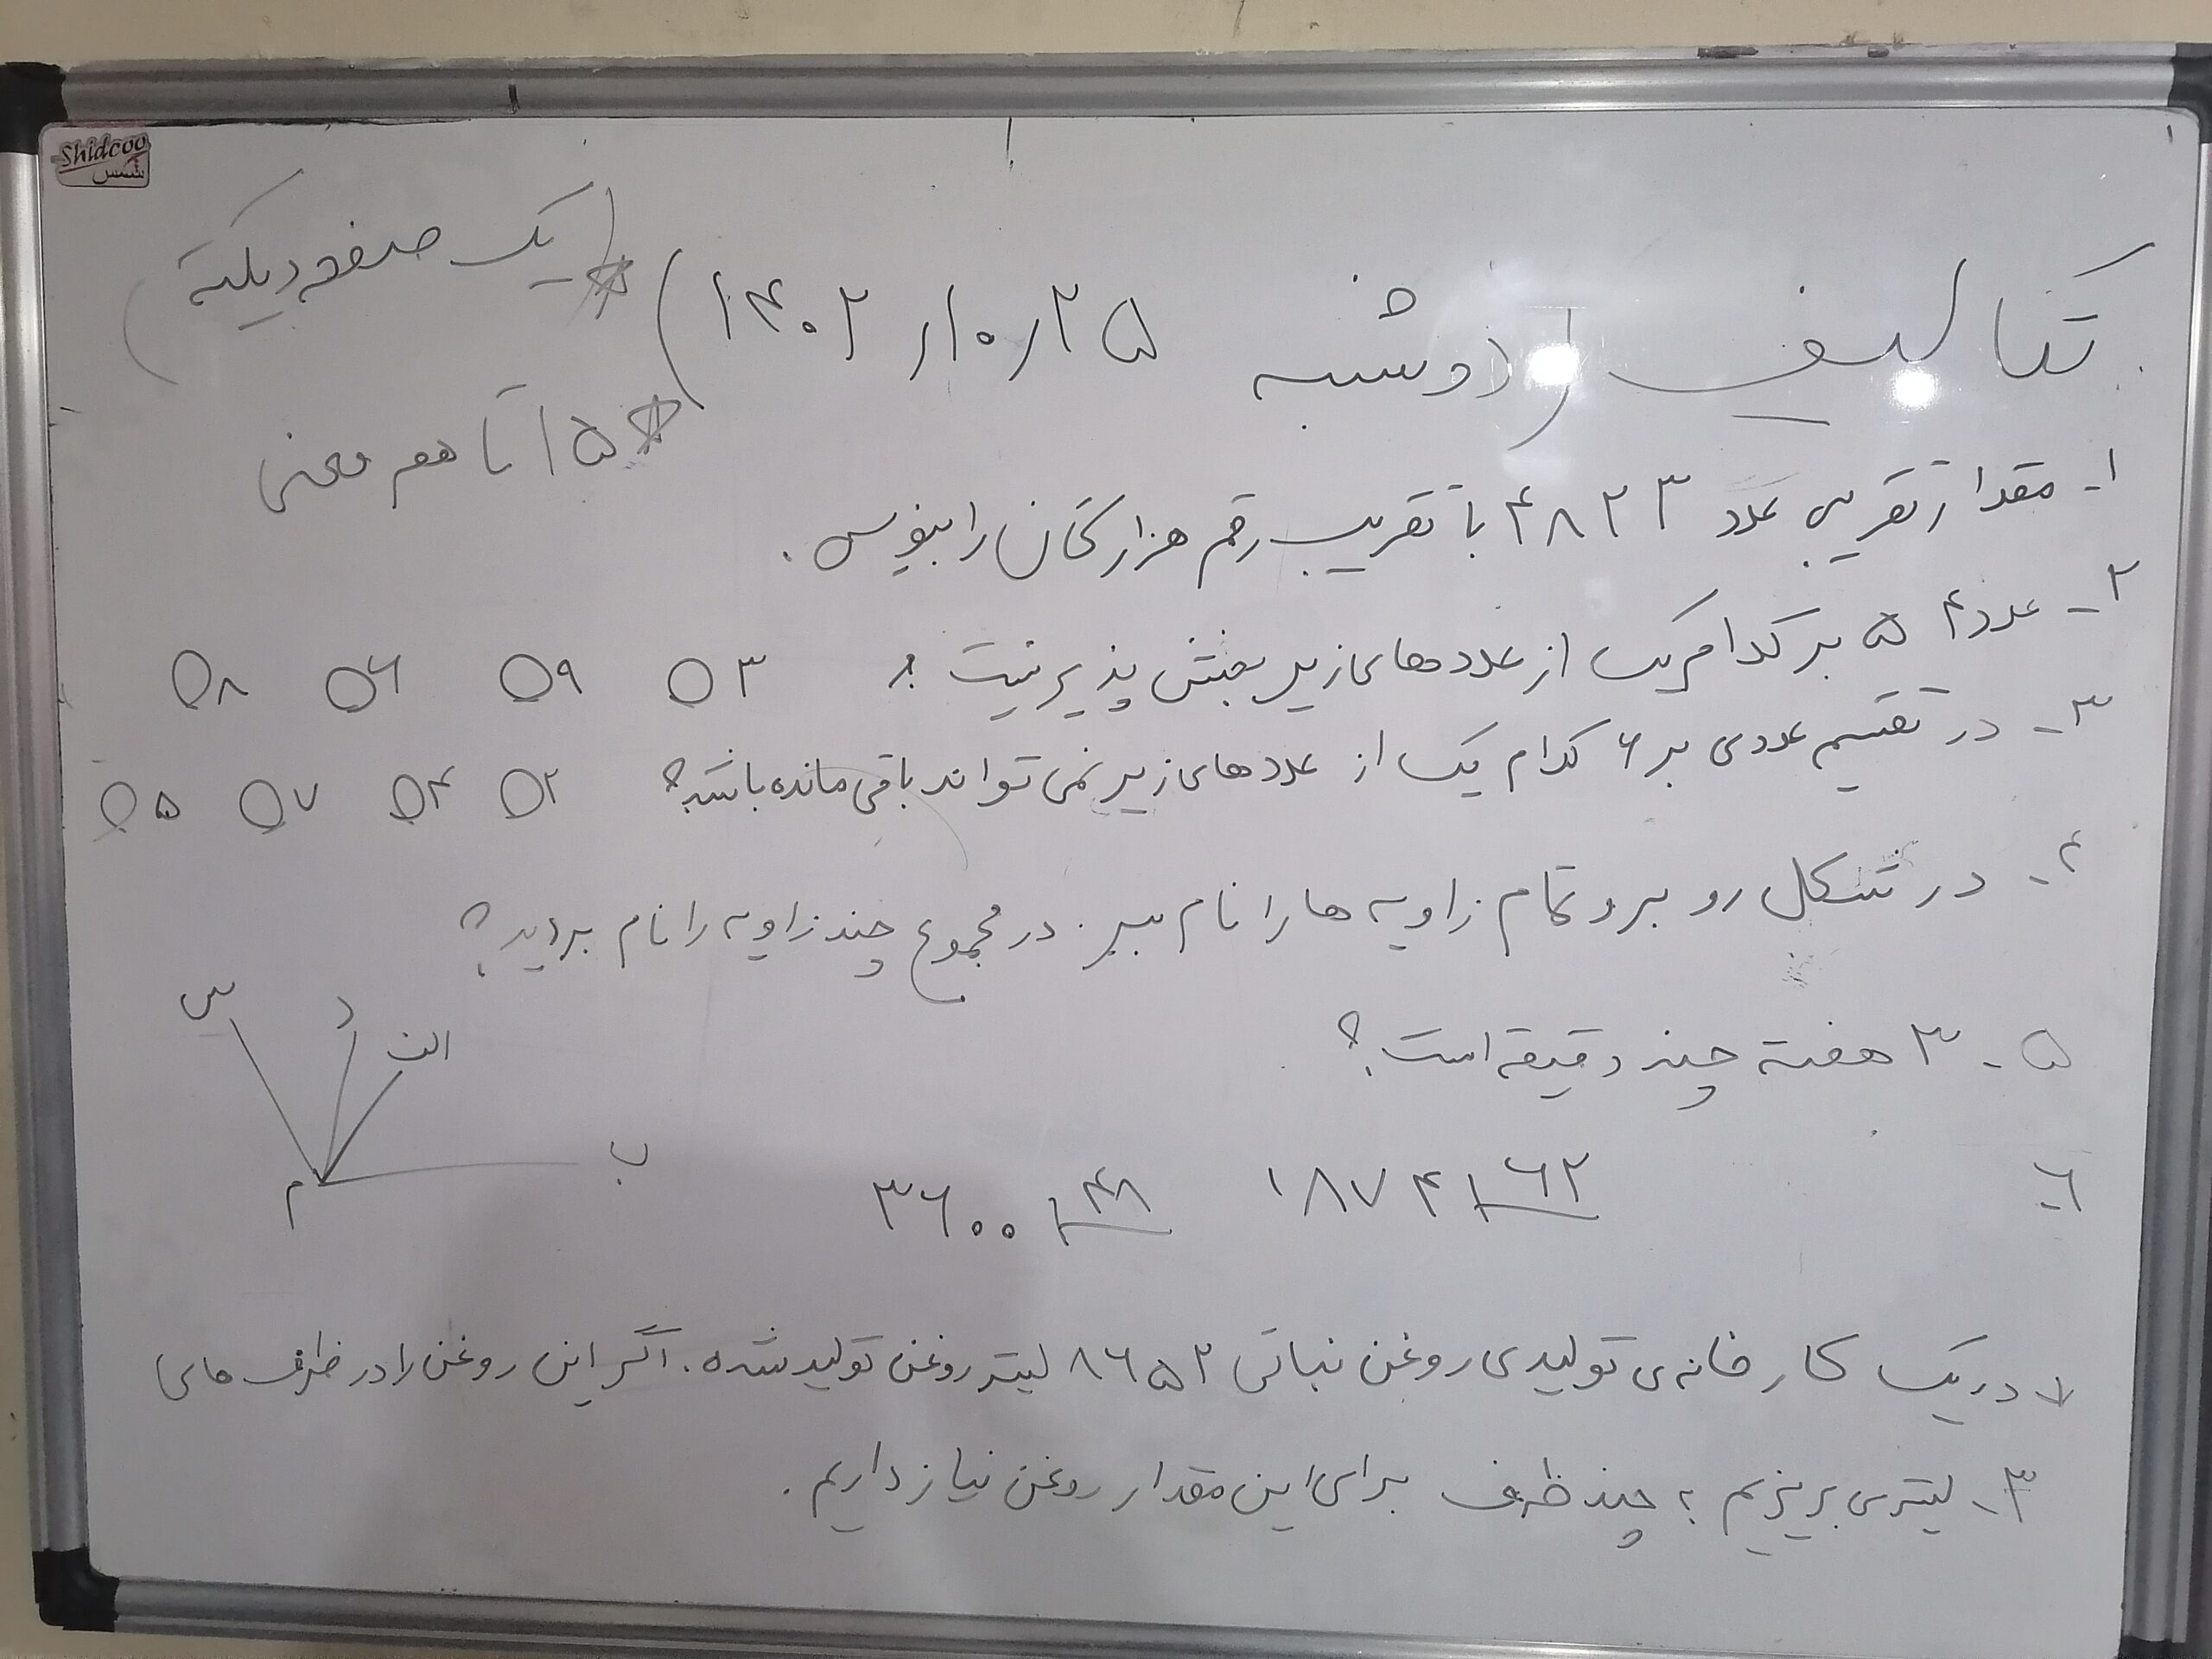 Shidcoo
شمس
تکالیف دوشنبه ۱۴۰۲/۱۰/۲۵
* یک صفحه دیکته
* ۱۵ تا هم معنی
۱- مقدار تقریبی عدد ۴۸۲۳ با تقریب رقم هزارگان را بنویس.
۲- عدد ۵۴ بر کدام یک از عددهای زیر بخش پذیر نیست؟ ۳ ۹ ۶ ۸
۳- در تقسیم عددی بر ۶ کدام یک از عددهای زیر نمی تواند باقی مانده باشد؟ ۲ ۴ ۷ ۵
۴- در شکل رو برو تمام زاویه ها را نام ببر. در مجموع چند زاویه را نام بردید؟
س
د
الف
ب
م
۵- ۳ هفته چند دقیقه است؟
۶- ۱۸۷۴ ۶۲ ۳۶۰۰ ۴۸
۷- در یک کارخانه ی تولیدی روغن نباتی ۸۶۵۲ لیتر روغن تولید شده. اگر این روغن را در ظرف های
۳- لیتری بریزیم به چند ظرف برای این مقدار روغن نیاز داریم.